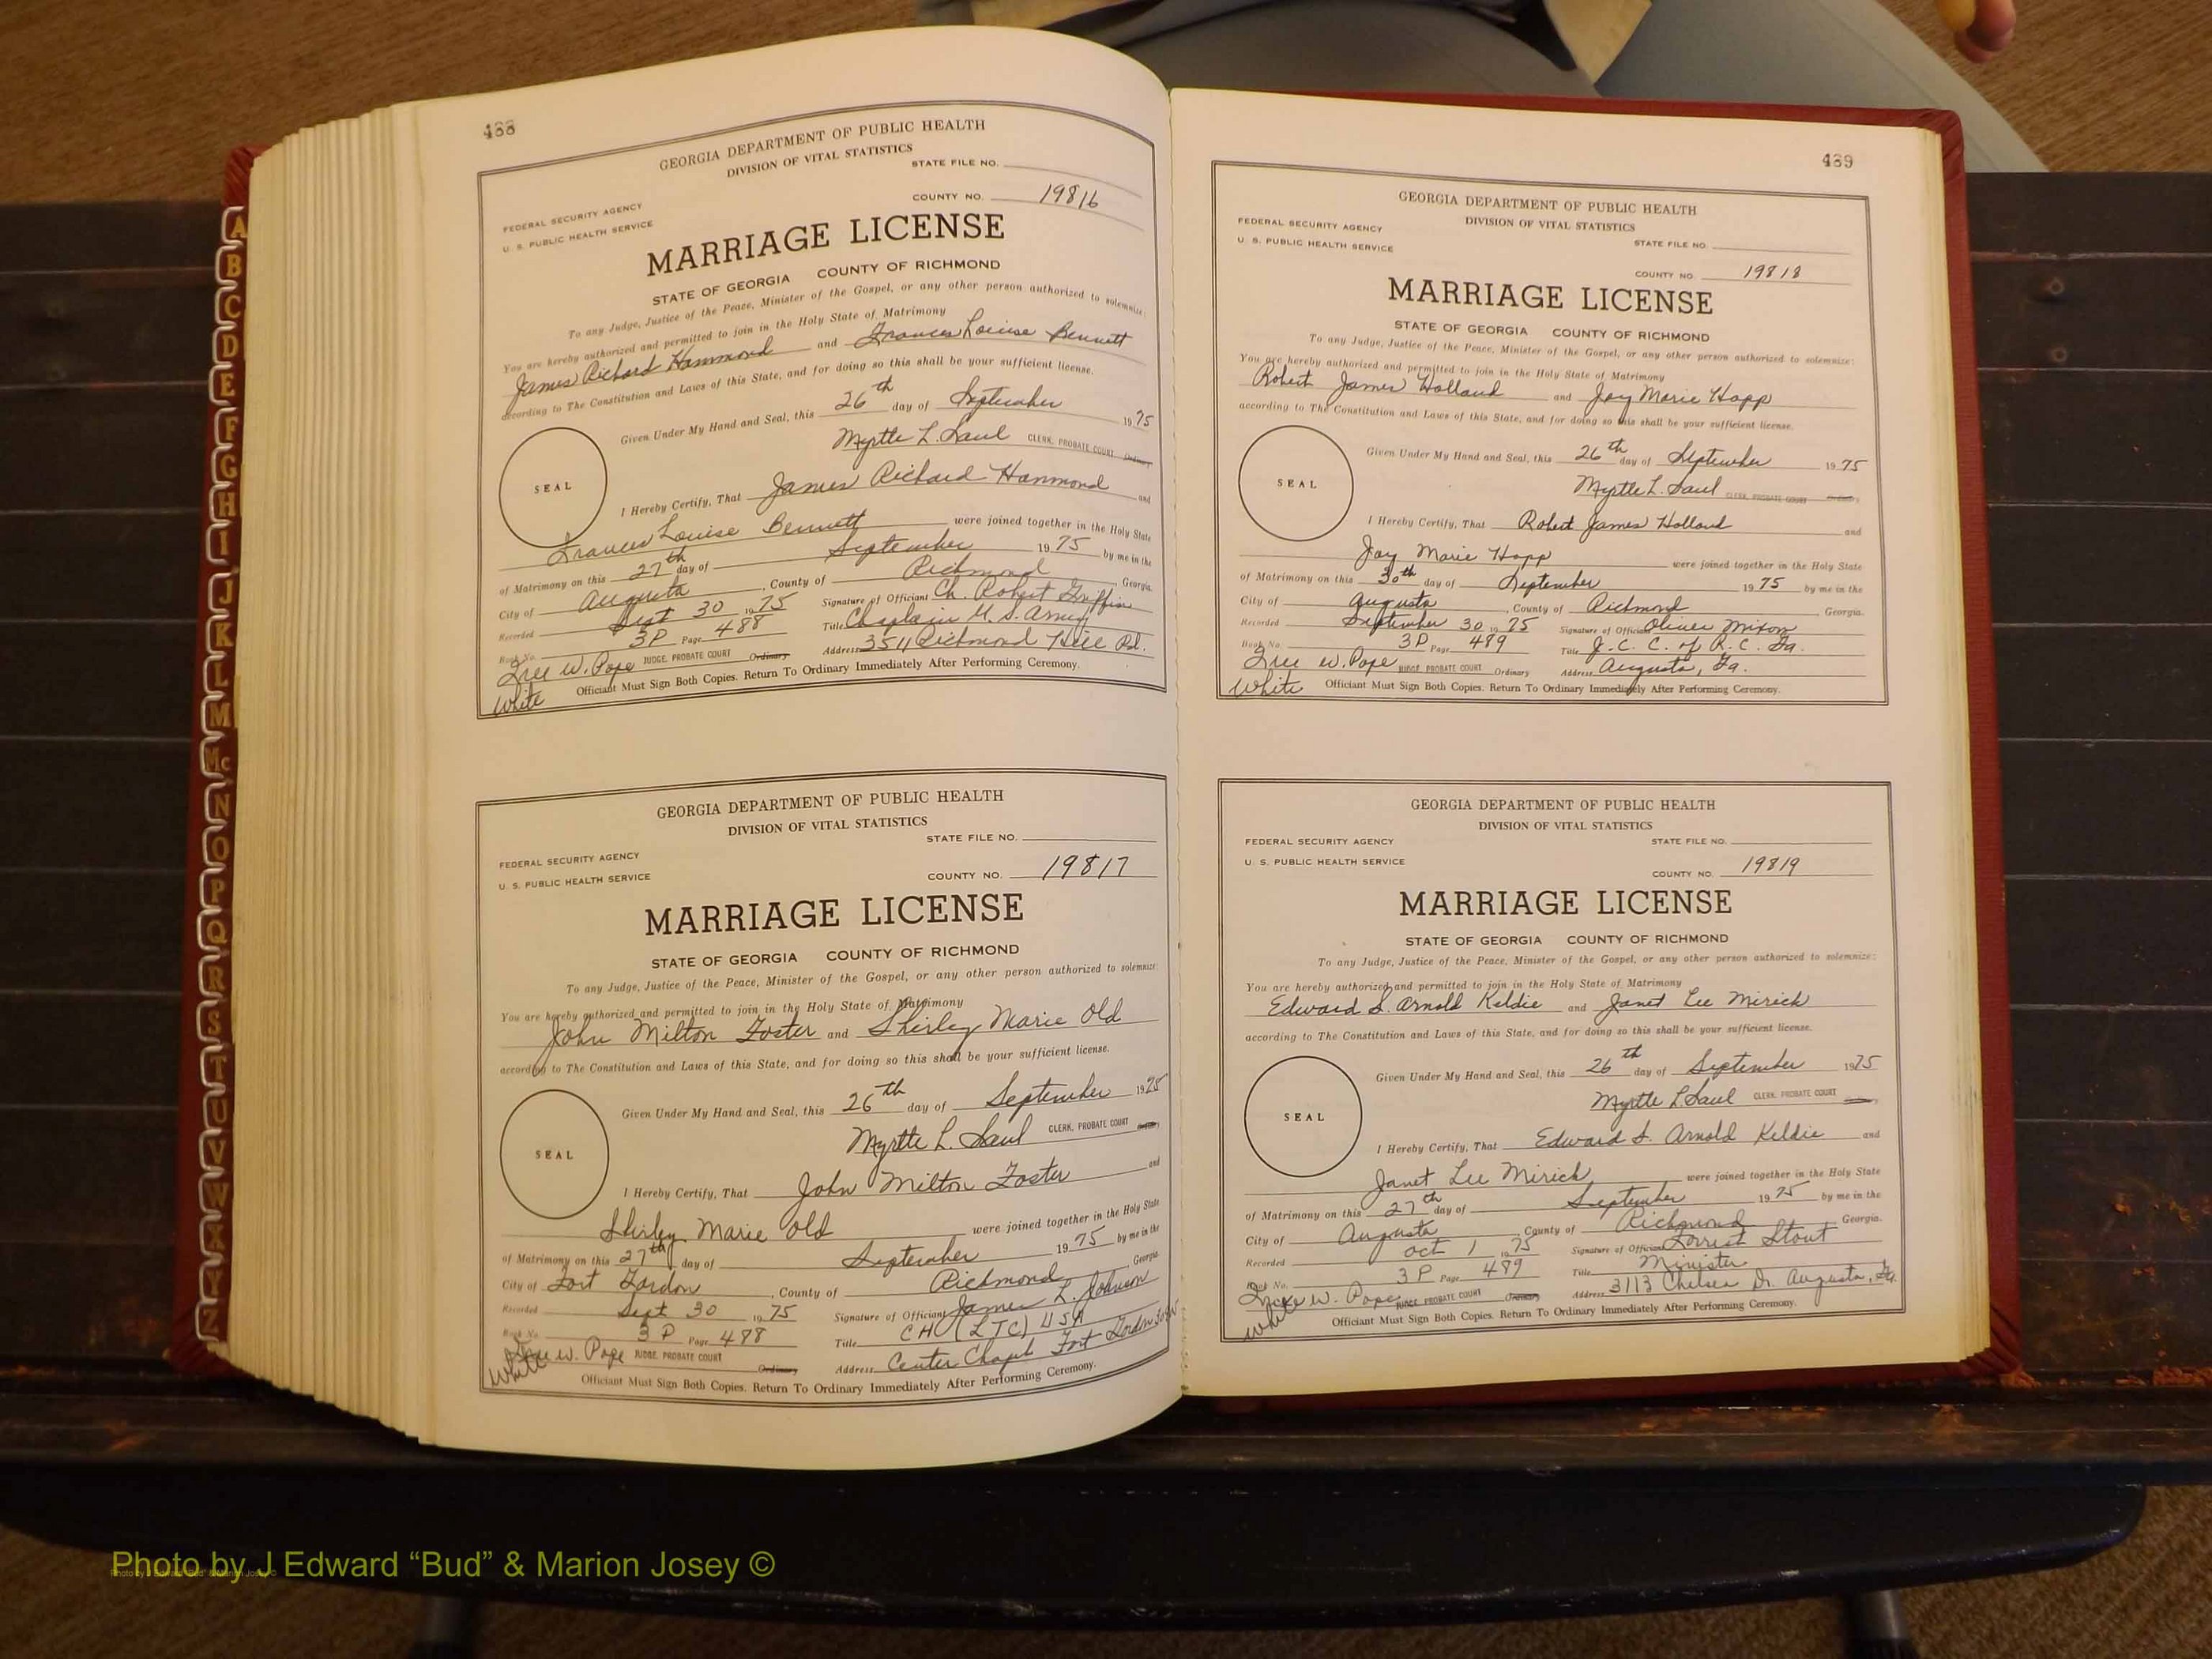 A
B
C
D
E
F
G
H
I
J
K
L
M
Mc
N
O
P
Q
R
S
T
U
V
W
X
Y
Z
488
GEORGIA DEPARTMENT OF PUBLIC HEALTH
DIVISION OF VITAL STATISTICS
STATE FILE NO.
FEDERAL SECURITY AGENCY
U. S. PUBLIC HEALTH SERVICE
COUNTY NO. 19816
MARRIAGE LICENSE
STATE OF GEORGIA COUNTY OF RICHMOND
To any Judge, Justice of the Peace, Minister of the Gospel, or any other person authorized to solemnize:
You are hereby authorized and permitted to join in the Holy State of Matrimony
James Richard Hammond and Frances Louise Bennett
according to The Constitution and Laws of this State, and for doing so this shall be your sufficient license.
Given Under My Hand and Seal, this 26th day of September 1975
Myrtle L. Saul CLERK, PROBATE COURT Ordinary
SEAL
I Hereby Certify, That James Richard Hammond and
Frances Louise Bennett were joined together in the Holy State
of Matrimony on this 27th day of September 1975 by me in the
City of Augusta, County of Richmond, Georgia.
Recorded Sept 30 1975 Signature of Officiant Ch. Robert Griffin
Book No. 3P Page 488 Title Chaplain U. S. Army
W. Pope JUDGE, PROBATE COURT Ordinary Address 3511 Richmond Hill Rd.
White Officiant Must Sign Both Copies. Return To Ordinary Immediately After Performing Ceremony.
GEORGIA DEPARTMENT OF PUBLIC HEALTH
DIVISION OF VITAL STATISTICS
STATE FILE NO.
FEDERAL SECURITY AGENCY
U. S. PUBLIC HEALTH SERVICE
COUNTY NO. 19817
MARRIAGE LICENSE
STATE OF GEORGIA COUNTY OF RICHMOND
To any Judge, Justice of the Peace, Minister of the Gospel, or any other person authorized to solemnize:
You are hereby authorized and permitted to join in the Holy State of Matrimony
John Milton Foster and Shirley Marie Old
according to The Constitution and Laws of this State, and for doing so this shall be your sufficient license.
Given Under My Hand and Seal, this 26th day of September 1975
Myrtle L. Saul CLERK, PROBATE COURT
SEAL
I Hereby Certify, That John Milton Foster and
Shirley Marie Old were joined together in the Holy State
of Matrimony on this 27th day of September 1975 by me in the
City of Fort Gordon, County of Richmond Georgia
Recorded Sept 30 1975 Signature of Officiant James L. Johnson
Book No. 3P Page 488 Title CH (LTC) USA
W. Pope JUDGE, PROBATE COURT Ordinary Address Center Chapel Fort Gordon
White Officiant Must Sign Both Copies. Return To Ordinary Immediately After Performing Ceremony.
489
GEORGIA DEPARTMENT OF PUBLIC HEALTH
DIVISION OF VITAL STATISTICS
FEDERAL SECURITY AGENCY
U. S. PUBLIC HEALTH SERVICE
STATE FILE NO.
COUNTY NO. 19818
MARRIAGE LICENSE
STATE OF GEORGIA COUNTY OF RICHMOND
To any Judge, Justice of the Peace, Minister of the Gospel, or any other person authorized to solemnize:
You are hereby authorized and permitted to join in the Holy State of Matrimony
Robert James Holland and Joy Marie Hopp
according to The Constitution and Laws of this State, and for doing so this shall be your sufficient license.
Given Under My Hand and Seal, this 26th day of September 1975
Myrtle L. Saul CLERK, PROBATE COURT
SEAL
I Hereby Certify, That Robert James Holland and
Joy Marie Hopp were joined together in the Holy State
of Matrimony on this 30th day of September 1975 by me in the
City of Augusta, County of Richmond Georgia.
Recorded September 30 1975 Signature of Officiant Oliver Mixon
Book No. 3P Page 489 Title J. C. C. of R. C. Ga.
W. Pope JUDGE, PROBATE COURT Ordinary Address Augusta, Ga.
White Officiant Must Sign Both Copies. Return To Ordinary Immediately After Performing Ceremony.
GEORGIA DEPARTMENT OF PUBLIC HEALTH
DIVISION OF VITAL STATISTICS
FEDERAL SECURITY AGENCY
U. S. PUBLIC HEALTH SERVICE
STATE FILE NO.
COUNTY NO. 19819
MARRIAGE LICENSE
STATE OF GEORGIA COUNTY OF RICHMOND
To any Judge, Justice of the Peace, Minister of the Gospel, or any other person authorized to solemnize:
You are hereby authorized and permitted to join in the Holy State of Matrimony
Edward S. Arnold Keldie and Janet Lee Mirick
according to The Constitution and Laws of this State, and for doing so this shall be your sufficient license.
Given Under My Hand and Seal, this 26th day of September 1975
Myrtle L Saul CLERK, PROBATE COURT
SEAL
I Hereby Certify, That Edward S. Arnold Keldie and
Janet Lee Mirick were joined together in the Holy State
of Matrimony on this 27th day of September 1975 by me in the
City of Augusta County of Richmond Georgia.
Recorded Oct 1 1975 Signature of Officiant Forrest Stout
Book No. 3P Page 489 Title Minister
W. Pope JUDGE, PROBATE COURT Ordinary Address 3113 Chelsea Dr. Augusta, Ga.
White Officiant Must Sign Both Copies. Return To Ordinary Immediately After Performing Ceremony.
Photo by J Edward “Bud” & Marion Josey ©
Photo by J Edward "Bud" & Marion Josey ©